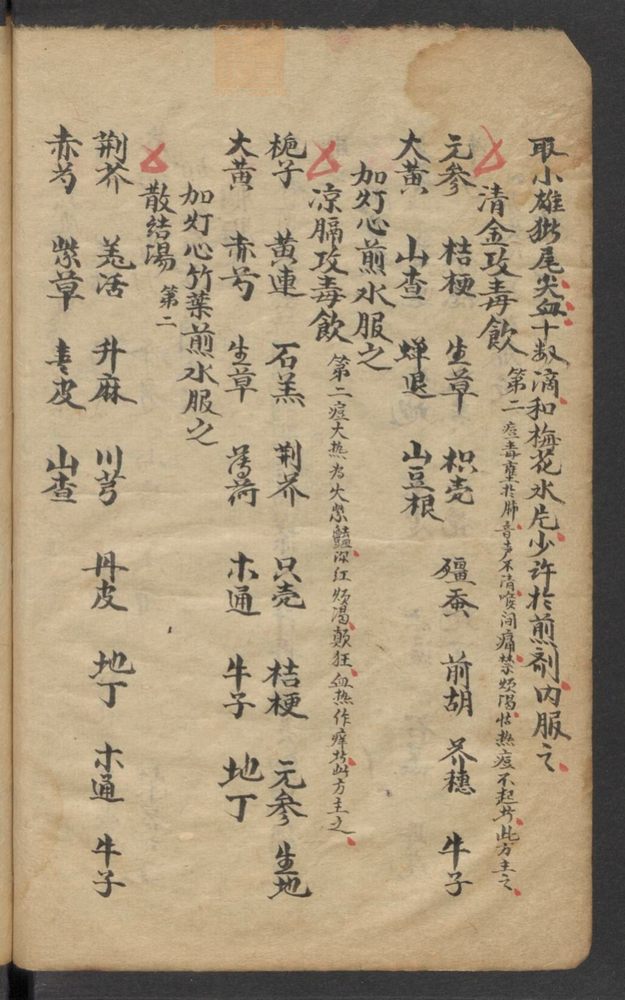 取小雄猪尾尖血十数滴和梅花水片少许扵煎剂内服之
清金攻毒飲 第二 痘毒壅扵肺音声不清喉间痛禁烦渴怯热痘不起者此方主之
元参 桔梗 生草 枳壳 殭蚕 前胡 芥穗 牛子
大黄 山查 蝉退 山豆根
加灯心煎水服之
凉膈攻毒飲 第二 痘大热为火紫艶深红烦渴颠狂血热作痒者此方主之
栀子 黄連 石羔 荆芥 只壳 桔梗 元参 生地
大黄 赤芍 生草 薄荷 木通 牛子 地丁
加灯心竹葉煎水服之
散結湯 第二
荆芥 羌活 升麻 川芎 丹皮 地丁 木通 牛子
赤芍 紫草 青皮 山查